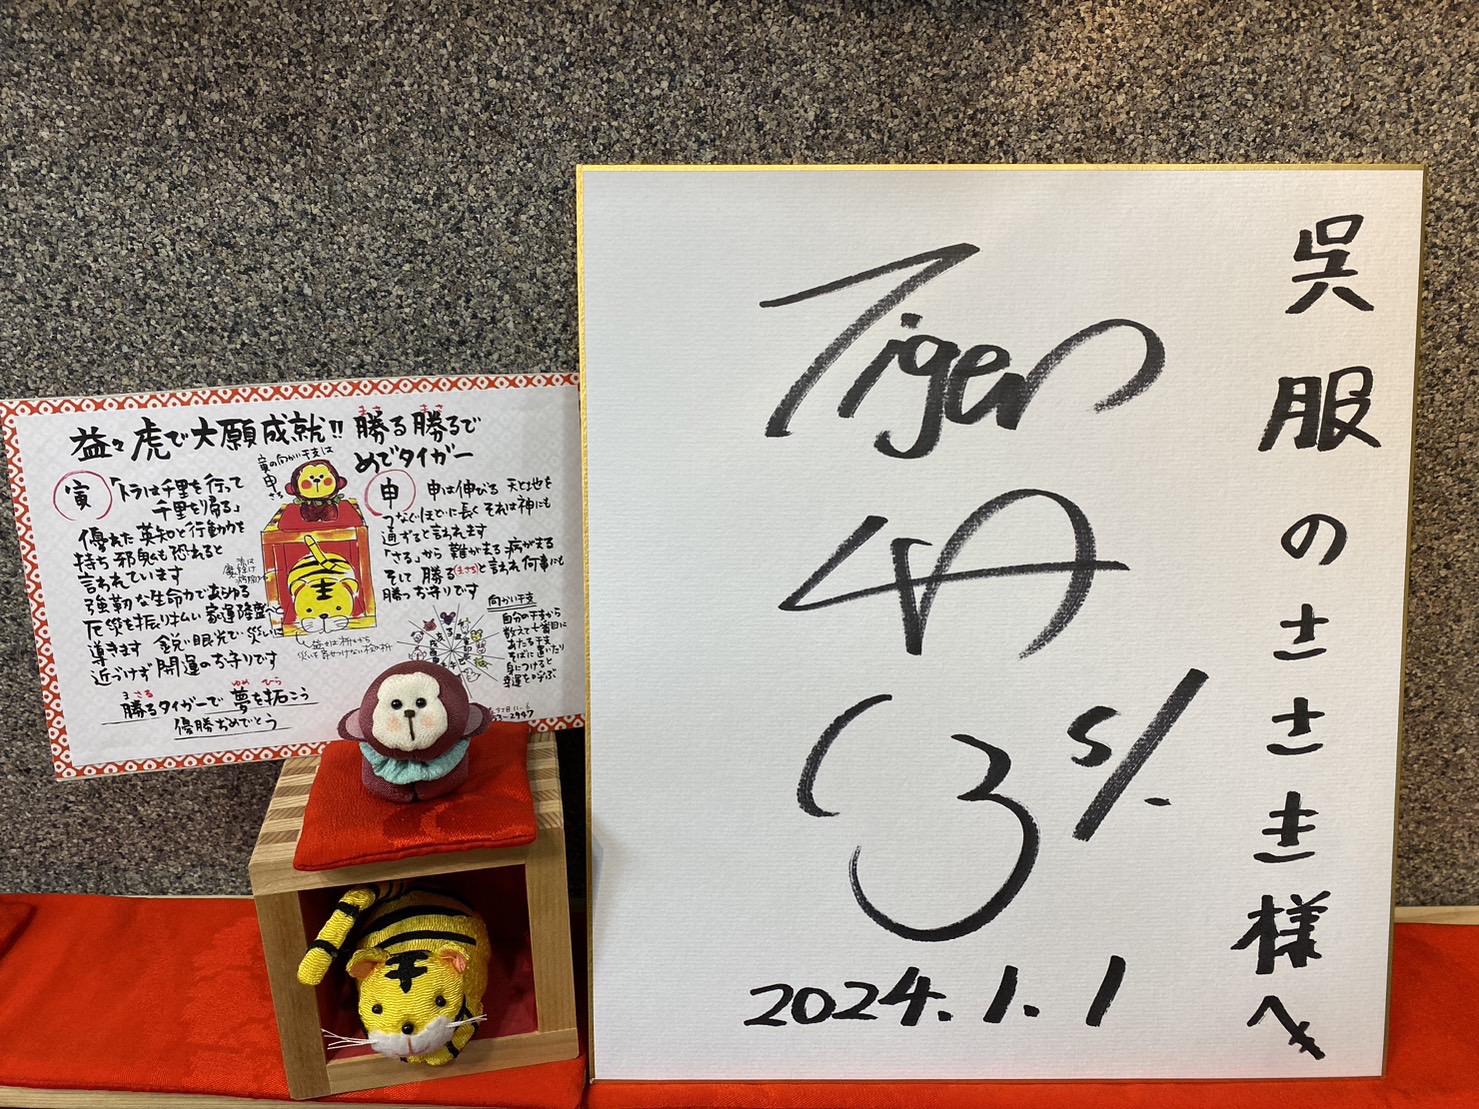 益々虎で大願成就!! 勝る勝るで
めでタイガー
まさ
まさ
寅
「トラは千里を行って
千里を帰る」
優れた英知と行動力を
持ち邪鬼も恐れると
言われています
強靭な生命力であらゆる
厄災を振り払い家運隆盛へと
導きます 鋭い眼光で災いに
近づけず開運のお守りです
寅の向かい干支は
申
さる
申
申は伸びる 天と地を
つなぐほどに長くそれは神にも
通ずると言われます
「さる」から 難が去る病が去る
そして 勝る(まさる)と言われ何事にも
勝つお守りです
向かい干支
自分の干支から
数えて七番目に
あたる干支
そばに置いたり
身につけると
幸運を呼ぶ
勝るタイガーで 夢を拓こう
さる
ゆめ
ひら
優勝おめでとう
53-2947
呉服のささき様へ
Tigers
2024.1.1